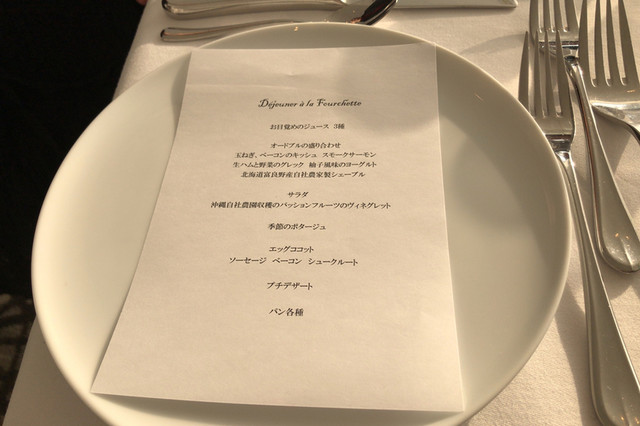 Déjeuner à la Fourchette
お目覚めのジュース 3種
オードブルの盛り合わせ
玉ねぎ、ベーコンのキッシュ スモークサーモン
生ハムと野菜のグレック 柚子風味のヨーグルト
北海道富良野産自社農家製シェーブル
サラダ
沖縄自社農園収穫のパッションフルーツのヴィネグレット
季節のポタージュ
エッグココット
ソーセージ ベーコン シュークルート
プチデザート
パン各種